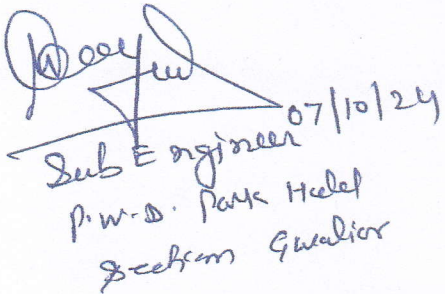 07/10/24
Sub Engineer
P.W.D. Park Hotel
Section Gwalior